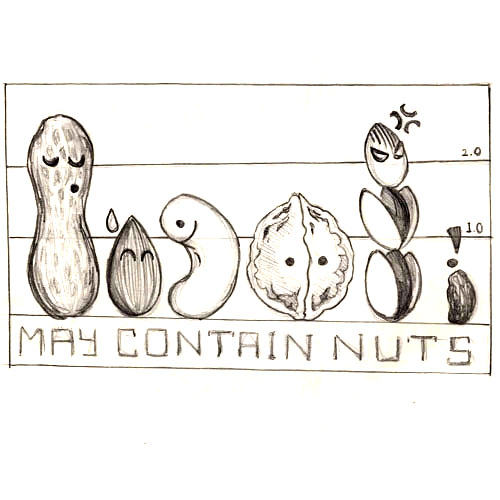 2.0
1.0
MAY CONTAIN NUTS